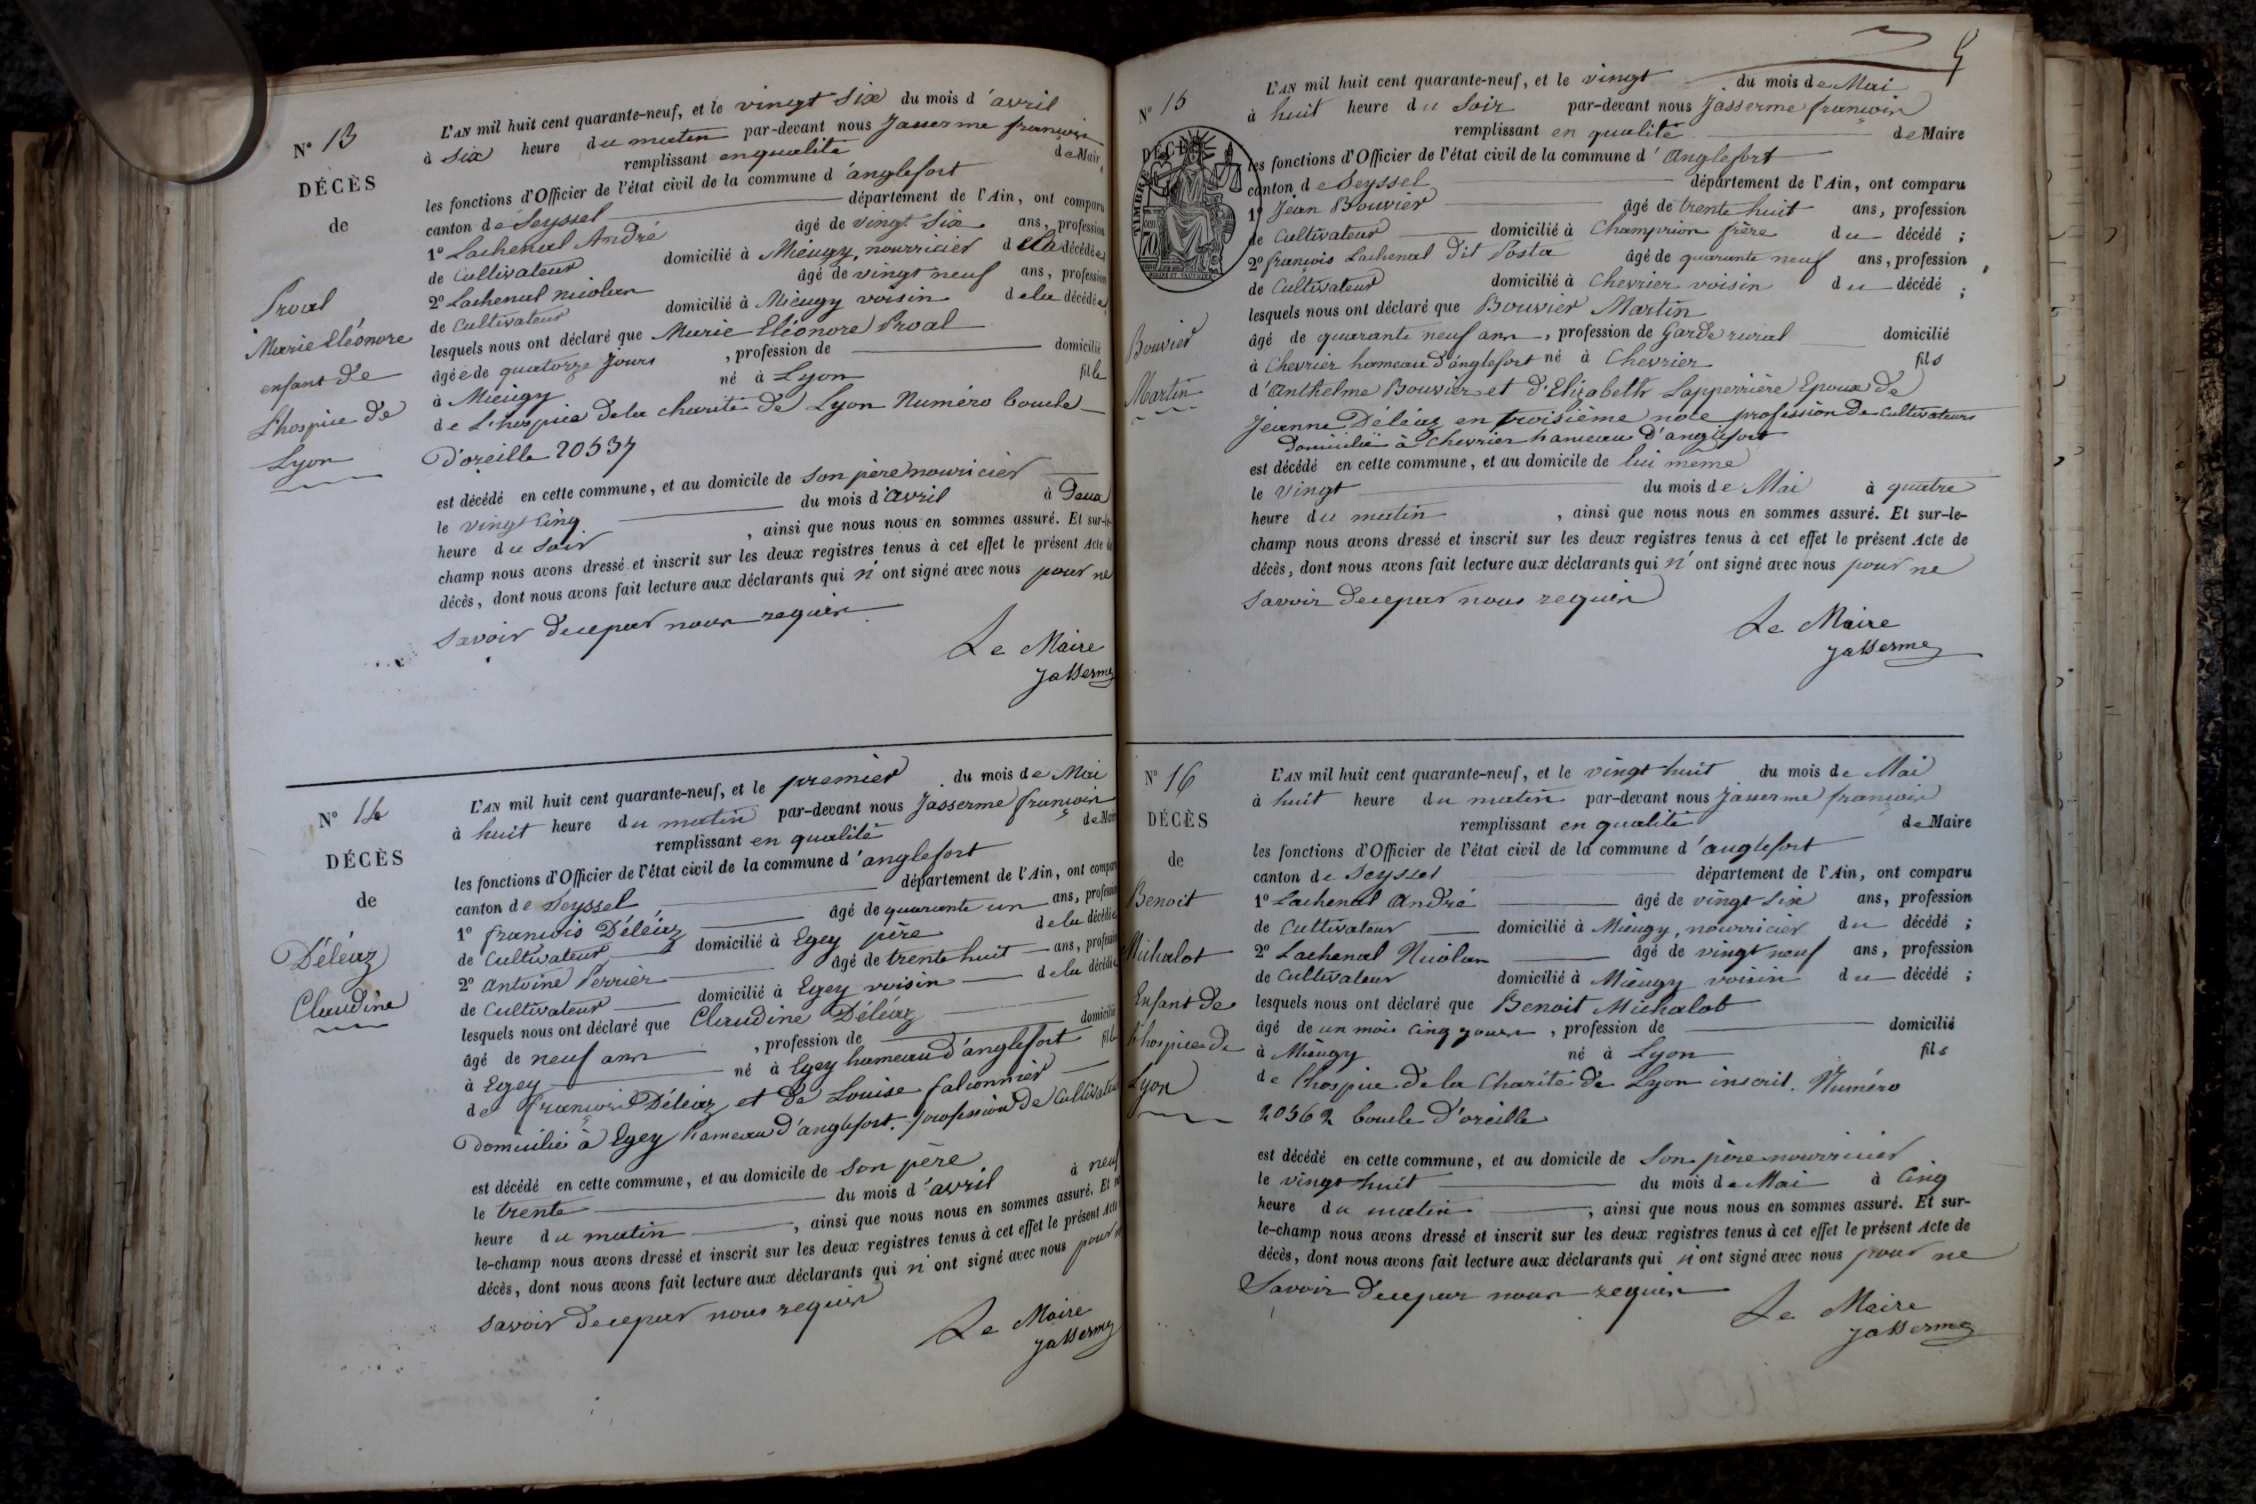 N° 13
DÉCÈS
de
Proal
Marie Eléonore
enfant de
L'hospice de
Lyon
L'AN mil huit cent quarante-neuf, et le vingt six du mois d'avril
à six heure du matin par-devant nous Jasserme françois
remplissant en qualité de Mair
les fonctions d'Officier de l'état civil de la commune d'anglefort
canton de Seyssel département de l'Ain, ont comparu
1° Lachenal André âgé de vingt six ans, profession
de Cultivateur domicilié à Mièugy, nourricier de la décédée
2° Lachenal nicolas âgé de vingt neuf ans, profession
de Cultivateur domicilié à Mièugy voisin de la décédée
lesquels nous ont déclaré que Marie Eléonore Proal
âgée de quatorze jours , profession de domicilié
à Mieugy né à Lyon fille
de L'hospice de la charité de Lyon Numéro boucle
D'oreille 20537
est décédé en cette commune, et au domicile de son père nouricier
le vingt cinq du mois d'avril à Deux
heure du soir , ainsi que nous nous en sommes assuré. Et sur-le-
champ nous avons dressé et inscrit sur les deux registres tenus à cet effet le présent Acte de
décès, dont nous avons fait lecture aux déclarants qui n'ont signé avec nous pour ne
savoir de ce par nous requis
Le Maire
Jasserme
N° 14
DÉCÈS
de
Déléaz
Claudine
L'AN mil huit cent quarante-neuf, et le premier du mois de Mai
à huit heure du matin par-devant nous Jasserme françois
remplissant en qualité de Mair
les fonctions d'Officier de l'état civil de la commune d'anglefort
canton de Seyssel département de l'Ain, ont comparu
1° françois Déléaz âgé de quarante un ans, profession
de Cultivateur domicilié à Egey père de la décédée
2° antoine Perrier âgé de trente huit ans, profession
de Cultivateur domicilié à Egey voisin de la décédée
lesquels nous ont déclaré que Claudine Déléaz
âgé de neuf ans , profession de domicilié
à Egey né à Egey hameau d'anglefort fille
de françois Déléaz et de Louise falconnier
Domicilié à Egey hameau d'anglefort. profession de Cultivateur
est décédé en cette commune, et au domicile de son père
le trente du mois d'avril à neuf
heure du matin , ainsi que nous nous en sommes assuré. Et sur-
le-champ nous avons dressé et inscrit sur les deux registres tenus à cet effet le présent Acte
décès, dont nous avons fait lecture aux déclarants qui n'ont signé avec nous pour ne
savoir de ce par nous requis
Le Maire
Jasserme
5
N° 15
DÉCÈS
TIMBRE
Bouvier
Martin
L'AN mil huit cent quarante-neuf, et le vingt du mois de Mai
à huit heure du soir par-devant nous Jasserme françois
remplissant en qualité de Maire
les fonctions d'Officier de l'état civil de la commune d'anglefort
canton de Seyssel département de l'Ain, ont comparu
1° Jean Bouvier âgé de trente huit ans, profession
de Cultivateur domicilié à Champrion frère du décédé ;
2° françois Lachenal Dit Posta âgé de quarante neuf ans, profession
de Cultivateur domicilié à Chevrier voisin du décédé ;
lesquels nous ont déclaré que Bouvier Martin
âgé de quarante neuf ans , profession de Garde rural domicilié
à Chevrier hameau d'anglefort né à Chevrier fils
d'Anthelme Bouvier et d'Elizabeth Lapperrière Epoux de
Jeanne Déléaz en troisième noce profession de cultivateurs
Domicilié à Chevrier hameau d'anglefort
est décédé en cette commune, et au domicile de lui même
le vingt du mois de Mai à quatre
heure du matin , ainsi que nous nous en sommes assuré. Et sur-le-
champ nous avons dressé et inscrit sur les deux registres tenus à cet effet le présent Acte de
décès, dont nous avons fait lecture aux déclarants qui n'ont signé avec nous pour ne
savoir de ce par nous requis
Le Maire
Jasserme
N° 16
DÉCÈS
de
Benoit
Michalot
Enfant de
l'hospice de
Lyon
L'AN mil huit cent quarante-neuf, et le vingt huit du mois de Mai
à huit heure du matin par-devant nous Jasserme françois
remplissant en qualité de Maire
les fonctions d'Officier de l'état civil de la commune d'anglefort
canton de Seyssel département de l'Ain, ont comparu
1° Lachenal André âgé de vingt six ans, profession
de Cultivateur domicilié à Mieugy, nourricier du décédé ;
2° Lachenal Nicolas âgé de vingt neuf ans, profession
de Cultivateur domicilié à Mieugy voisin du décédé ;
lesquels nous ont déclaré que Benoit Michalot
âgé de un mois cinq jours , profession de domicilié
à Mieugy né à Lyon fils
de l'hospice de la Charité de Lyon inscrit. Numéro
20562 boucle D'oreille
est décédé en cette commune, et au domicile de son père nourricier
le vingt huit du mois de Mai à Cinq
heure du matin , ainsi que nous nous en sommes assuré. Et sur-
le-champ nous avons dressé et inscrit sur les deux registres tenus à cet effet le présent Acte de
décès, dont nous avons fait lecture aux déclarants qui n'ont signé avec nous pour ne
Savoir de ce par nous requis
Le Maire
Jasserme